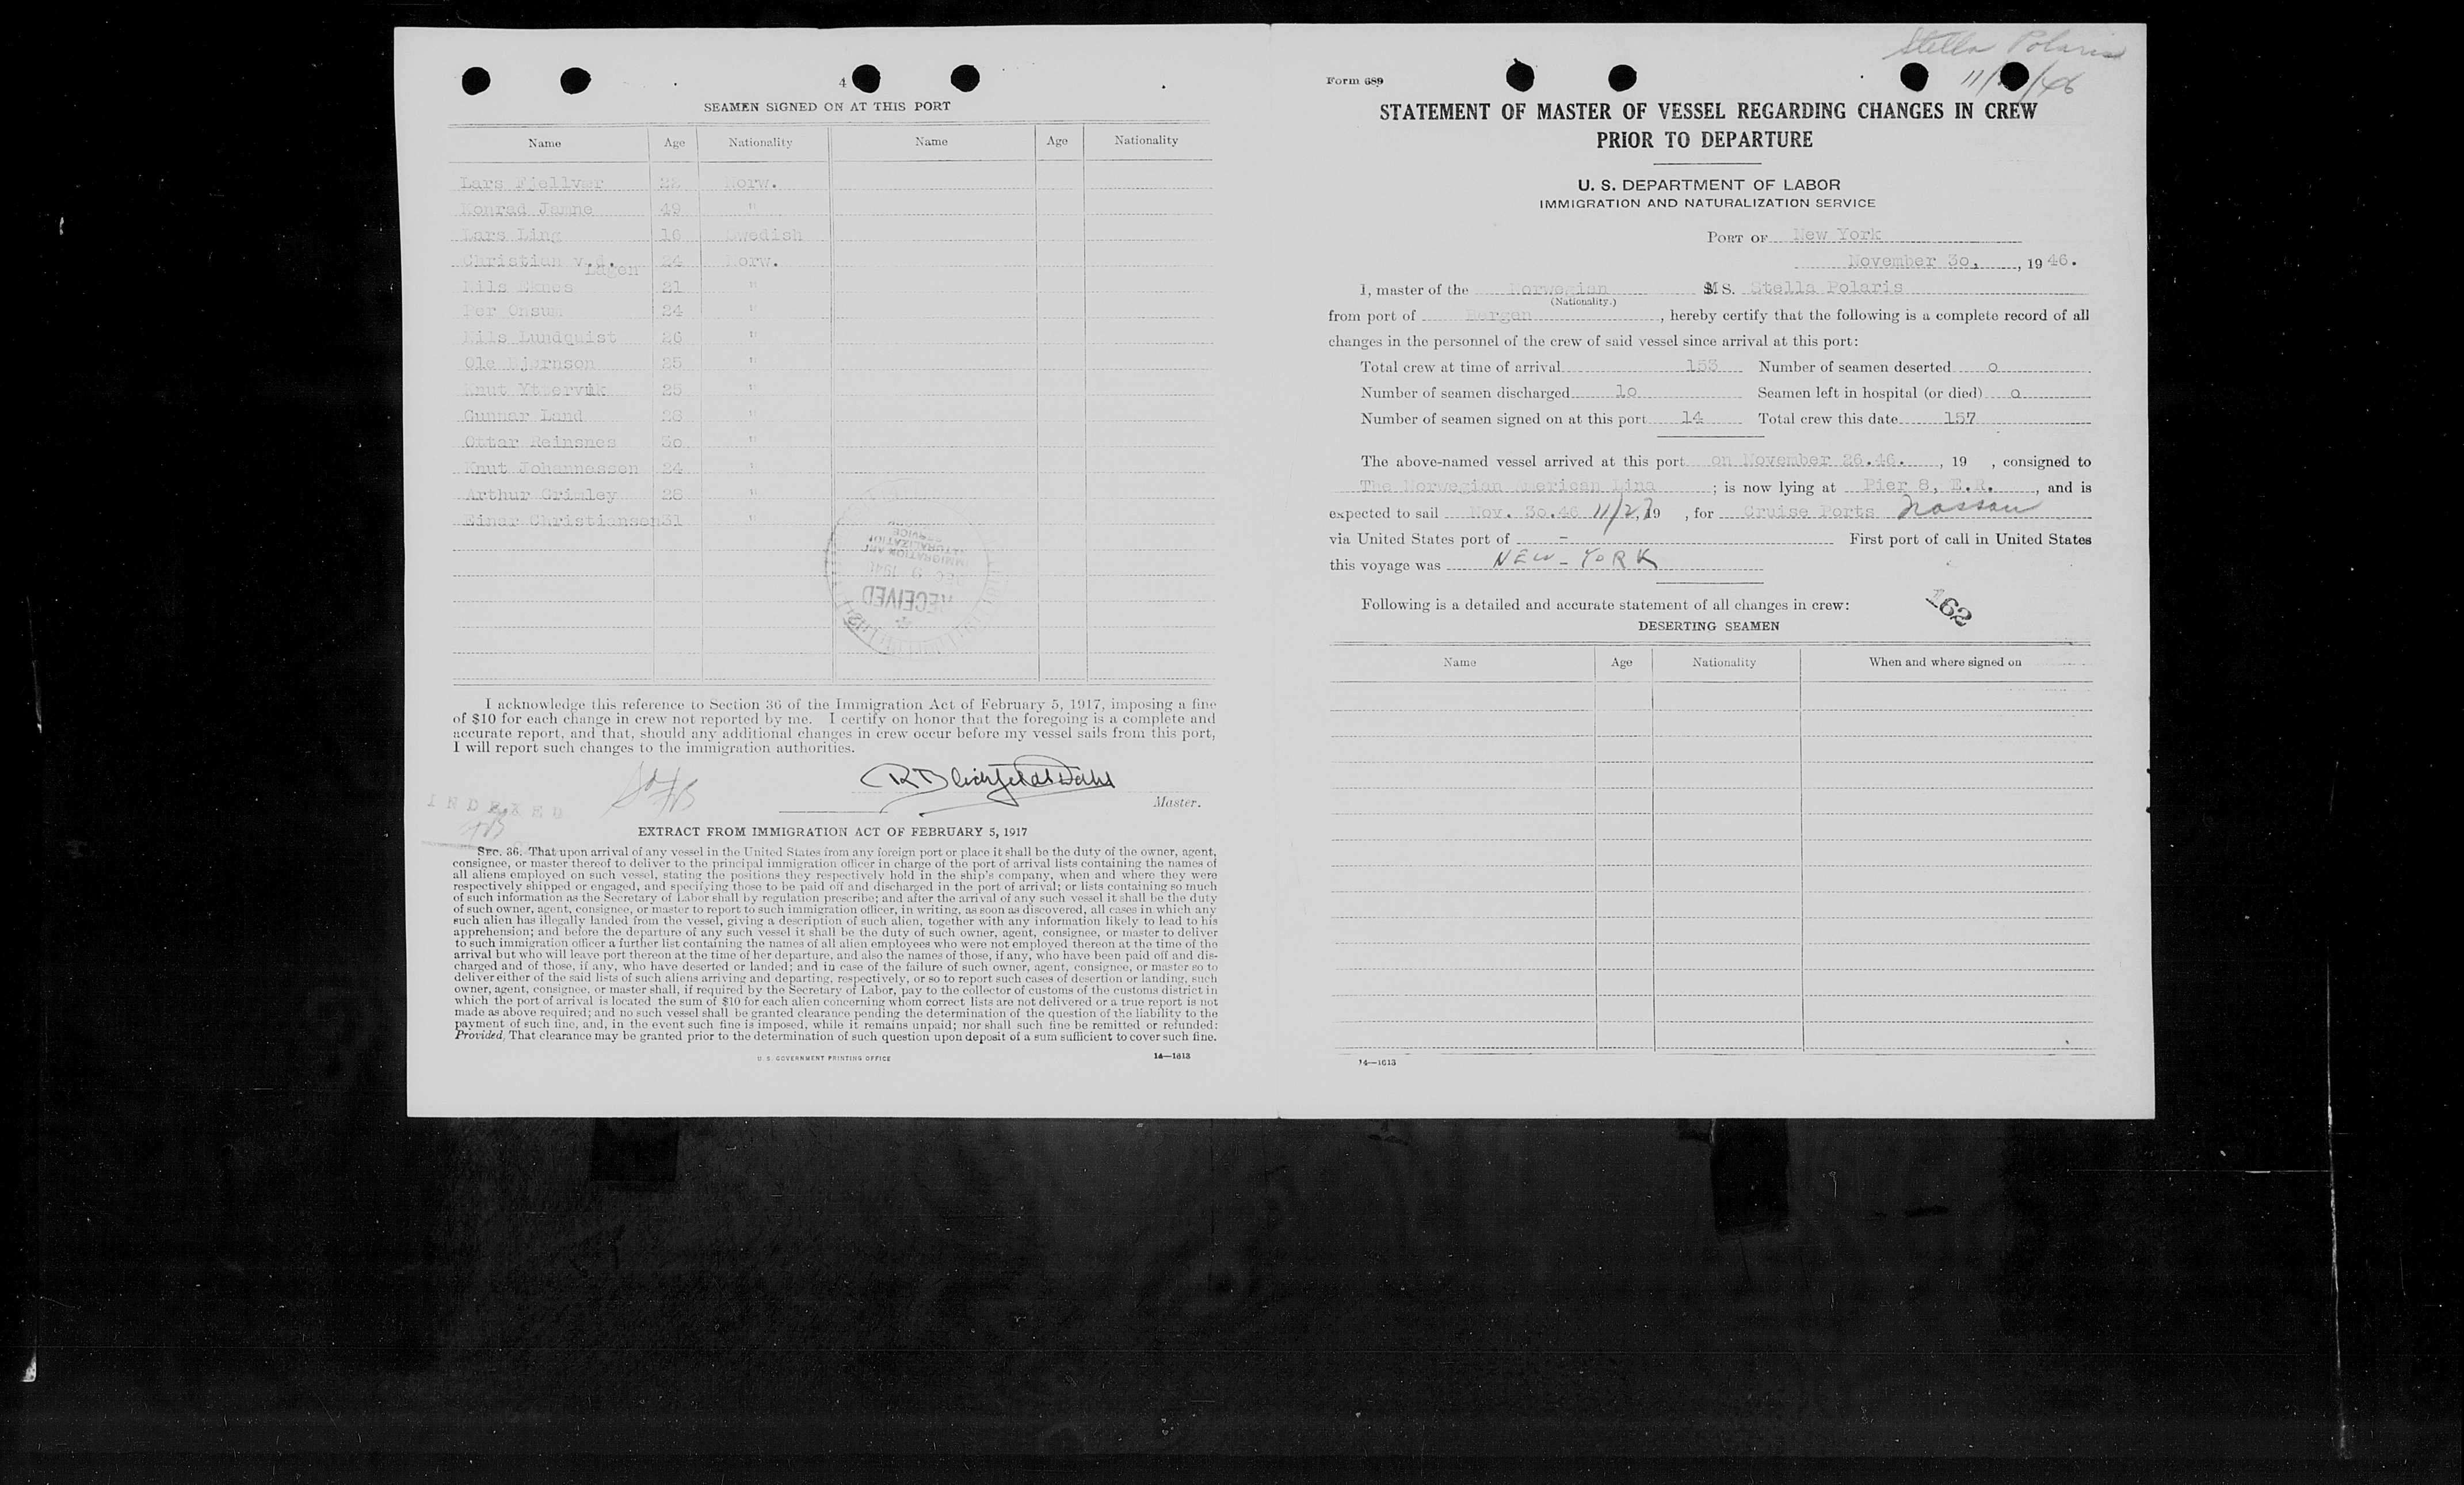 4
SEAMEN SIGNED ON AT THIS PORT
Name Age Nationality Name Age Nationality
Lars Fjellvær 22 Norw.
Konrad Jamne 49 "
Lars Ling 16 Swedish
Christian v.d. Lagen 24 Norw.
Nils Eknes 21 "
Per Onsum 24 "
Nils Lundquist 26 "
Ole Bjørnson 25 "
Knut Yttervik 25 "
Gunnar Land 28 "
Ottar Reinsnes 3o "
Knut Johannesson 24 "
Arthur Grimley 28 "
Einar Christianson 31 "
IMMIGRATION AND
NATURALIZATION
SERVICE
DEC 9 1946
RECEIVED
I acknowledge this reference to Section 36 of the Immigration Act of February 5, 1917, imposing a fine
of $10 for each change in crew not reported by me. I certify on honor that the foregoing is a complete and
accurate report, and that, should any additional changes in crew occur before my vessel sails from this port,
I will report such changes to the immigration authorities.
INDEXED
Master.
EXTRACT FROM IMMIGRATION ACT OF FEBRUARY 5, 1917
SEC. 36. That upon arrival of any vessel in the United States from any foreign port or place it shall be the duty of the owner, agent,
consignee, or master thereof to deliver to the principal immigration officer in charge of the port of arrival lists containing the names of
all aliens employed on such vessel, stating the positions they respectively hold in the ship's company, when and where they were
respectively shipped or engaged, and specifying those to be paid off and discharged in the port of arrival; or lists containing so much
of such information as the Secretary of Labor shall by regulation prescribe; and after the arrival of any such vessel it shall be the duty
of such owner, agent, consignee, or master to report to such immigration officer, in writing, as soon as discovered, all cases in which any
such alien has illegally landed from the vessel, giving a description of such alien, together with any information likely to lead to his
apprehension; and before the departure of any such vessel it shall be the duty of such owner, agent, consignee, or master to deliver
to such immigration officer a further list containing the names of all alien employees who were not employed thereon at the time of the
arrival but who will leave port thereon at the time of her departure, and also the names of those, if any, who have been paid off and dis-
charged and of those, if any, who have deserted or landed; and in case of the failure of such owner, agent, consignee, or master so to
deliver either of the said lists of such aliens arriving and departing, respectively, or so to report such cases of desertion or landing, such
owner, agent, consignee, or master shall, if required by the Secretary of Labor, pay to the collector of customs of the customs district in
which the port of arrival is located the sum of $10 for each alien concerning whom correct lists are not delivered or a true report is not
made as above required; and no such vessel shall be granted clearance pending the determination of the question of the liability to the
payment of such fine, and, in the event such fine is imposed, while it remains unpaid; nor shall such fine be remitted or refunded:
Provided, That clearance may be granted prior to the determination of such question upon deposit of a sum sufficient to cover such fine.
U. S. GOVERNMENT PRINTING OFFICE 14—1613
Stella Polaris
Form 689
STATEMENT OF MASTER OF VESSEL REGARDING CHANGES IN CREW
PRIOR TO DEPARTURE
U. S. DEPARTMENT OF LABOR
IMMIGRATION AND NATURALIZATION SERVICE
PORT OF New York
November 3o, , 19 46.
I, master of the Norwegian MS. Stella Polaris
(Nationality.)
from port of Bergen , hereby certify that the following is a complete record of all
changes in the personnel of the crew of said vessel since arrival at this port:
Total crew at time of arrival 153 Number of seamen deserted o
Number of seamen discharged 1o Seamen left in hospital (or died) o
Number of seamen signed on at this port 14 Total crew this date 157
The above-named vessel arrived at this port on November 26.46. , 19 , consigned to
The Norwegian American Line ; is now lying at Pier 8, E.R. , and is
expected to sail Nov. 3o.46 11/27, 19 , for Cruise Ports Nassau
via United States port of - First port of call in United States
this voyage was NEW-YORK
Following is a detailed and accurate statement of all changes in crew:
162
DESERTING SEAMEN
Name Age Nationality When and where signed on
14—1613